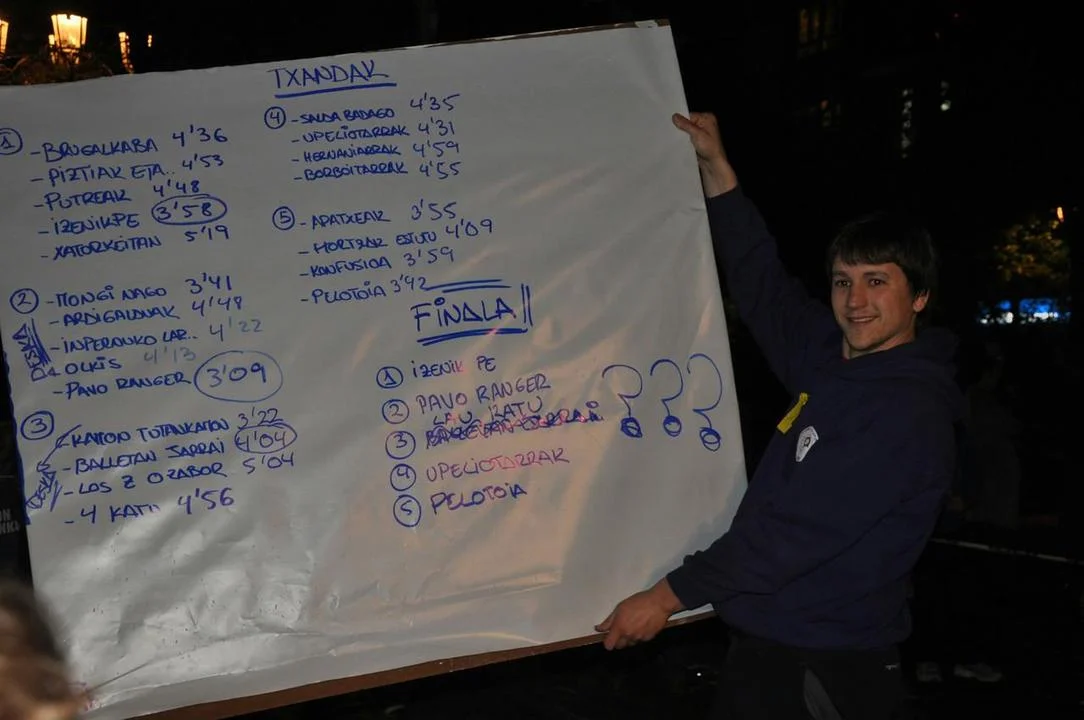 TXANDAK
1
- BRUGALKABA 4'36
- PIZTIAK ETA.. 4'53
- PUTREAK 4'48
- IZENIKPE 3'58
- XATORKEITAN 5'19
2
- MONGI NAGO 3'41
- ARDIGALDUAK 4'48
- INPERNUKO LAR.. 4'22
OLKIS 4'13
- PAVO RANGER 3'09
DESKA
3
TUTANKAMON 3'22
- BALLETAN JARRAI 4'04
- LOS Z O ZABOR 5'04
- 4 KATU 4'56
DESKA
4
- SALDA BADAGO 4'35
- UPELIOTARRAK 4'31
- HERNANIARRAK 4'59
- BORBOITARRAK 4'55
5
- APATXEAK 3'55
- HORTZAK ESTUTU 4'09
- KONFUSIOA 3'59
- PELOTOIA 3'42
FINALA!!
1 IZENIK PE
2 PAVO RANGER
LAU KATU
3
4 UPELIOTARRAK
5 PELOTOIA
???